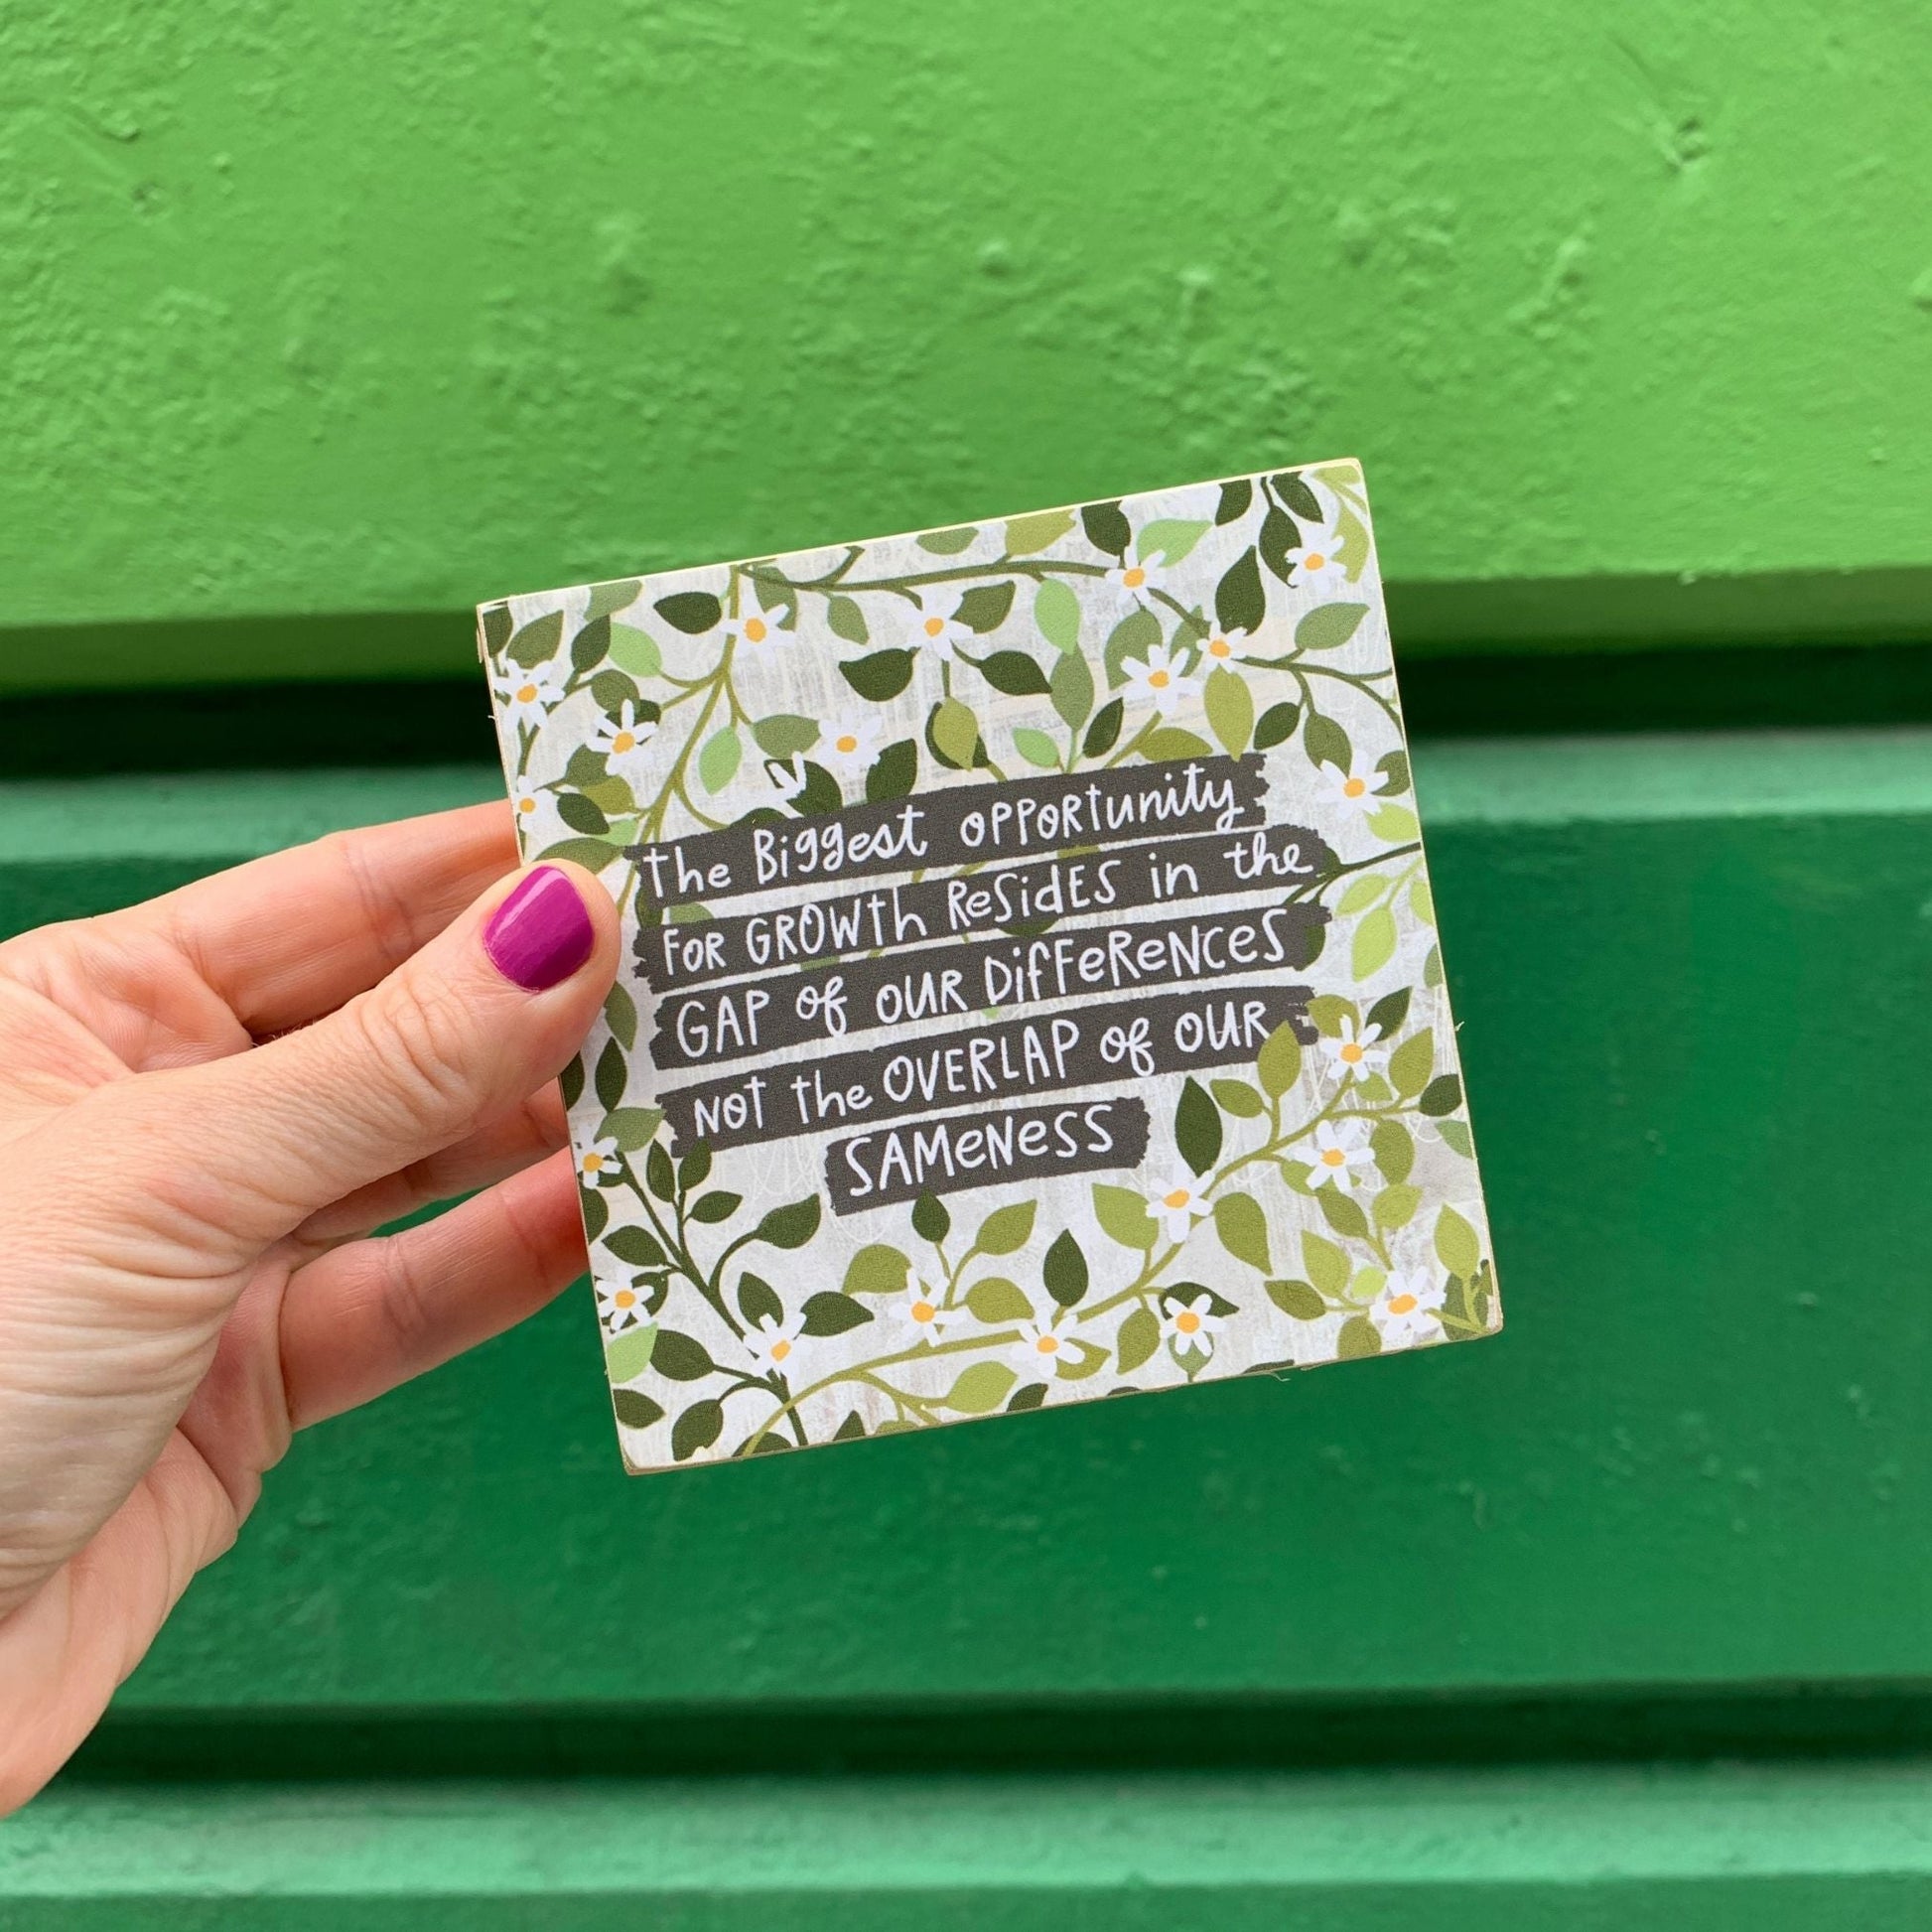 the Biggest OPPORtunity
FOR GROWth ReSidES in the
GAP of OUR DiffeReNCeS
NOT the OVERLAP of OUR
SAMeNeSS